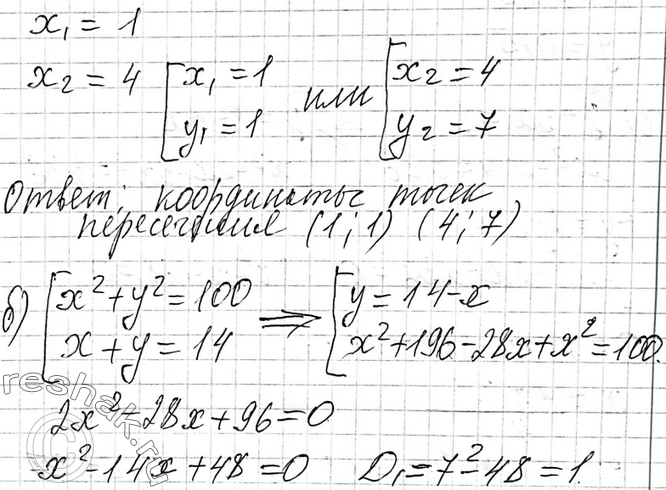 x₁ = 1
x₂ = 4 [x₁ = 1 y₁ = 1 или [x₂ = 4 y₂ = 7
Ответ: координаты точек
пересечения (1; 1) (4; 7)
б) [x² + y² = 100 x + y = 14 ⟹ [y = 14 - x x² + 196 - 28x + x² = 100.
2x² - 28x + 96 = 0
x² - 14x + 48 = 0 D₁ = 7² - 48 = 1.
reshak.ru